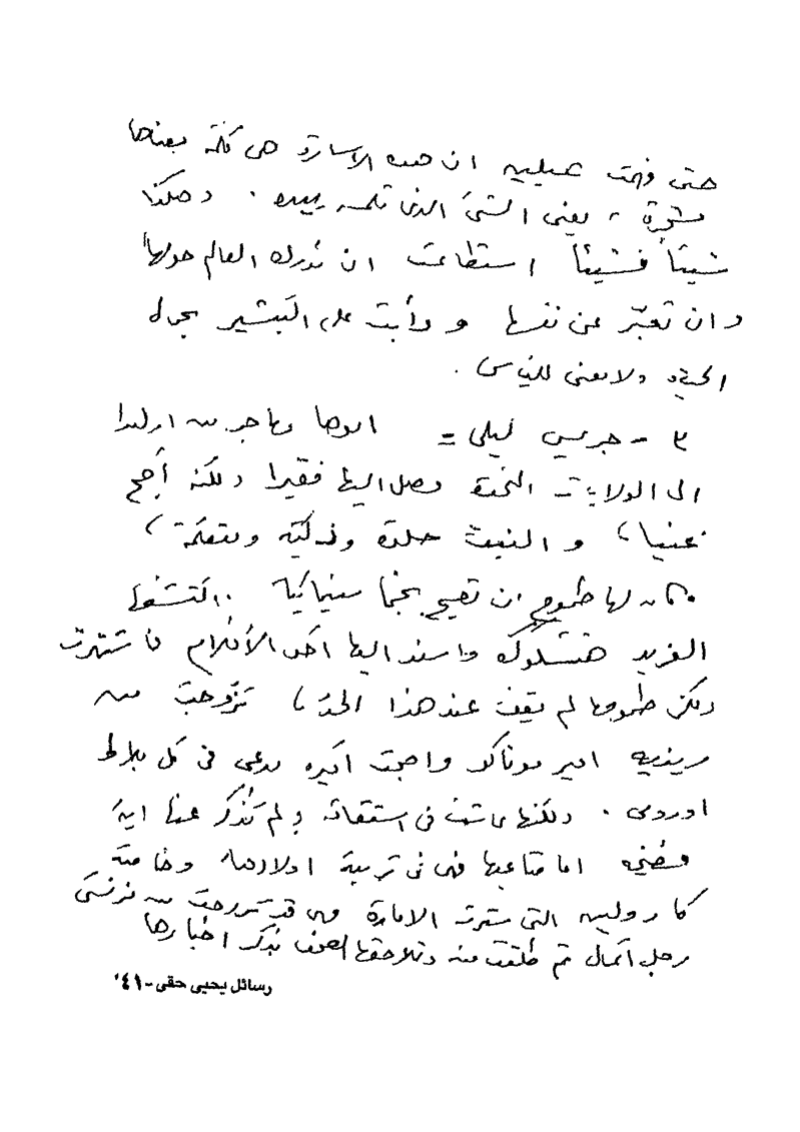 حتى فهمت هيلين ان هذه الإشارة هى كلمة بعينها
شجرة ، يعنى الشئ الذى تلمسه بيدها . وهكذا
شيئاً فشيئاً استطاعت ان تدرك العالم حولها
وان تعبّر عن نفسها ودأبت على التبشير بجمال
الحياة ولا معنى لليأس .
٣ - جريس كيلى = ابوها مهاجر من ايرلندا
الى الولايات المتحدة وصل اليها فقيرا ولكنه أصبح
غنيا ، و البنت حلوة وذكية ومتعلمة ،
كان لها طموح ان تصبح نجما سينمائيا . اكتشفها
الفريد هتشكوك واسند اليها احد الأفلام فاشتهرت
ولكن طموحها لم يقف عند هذا الحدّ ، تزوجت من
رينيه امير موناكو واصبحت اميره تدعى فى كل بلاط
اوروبى . ولكنها عاشت فى استقامة ولم تُذكر عنها اية
فضيحه اما متاعبها فهى فى تربية اولادها وخاصة
كارولين التى سترث الامارة وهى قد تزوجت من فرنسى
رجل أعمال ثم طلقت منه وتلاحقها الصحف بذكر اخبارها
رسائل يحيى حقى - ٤١